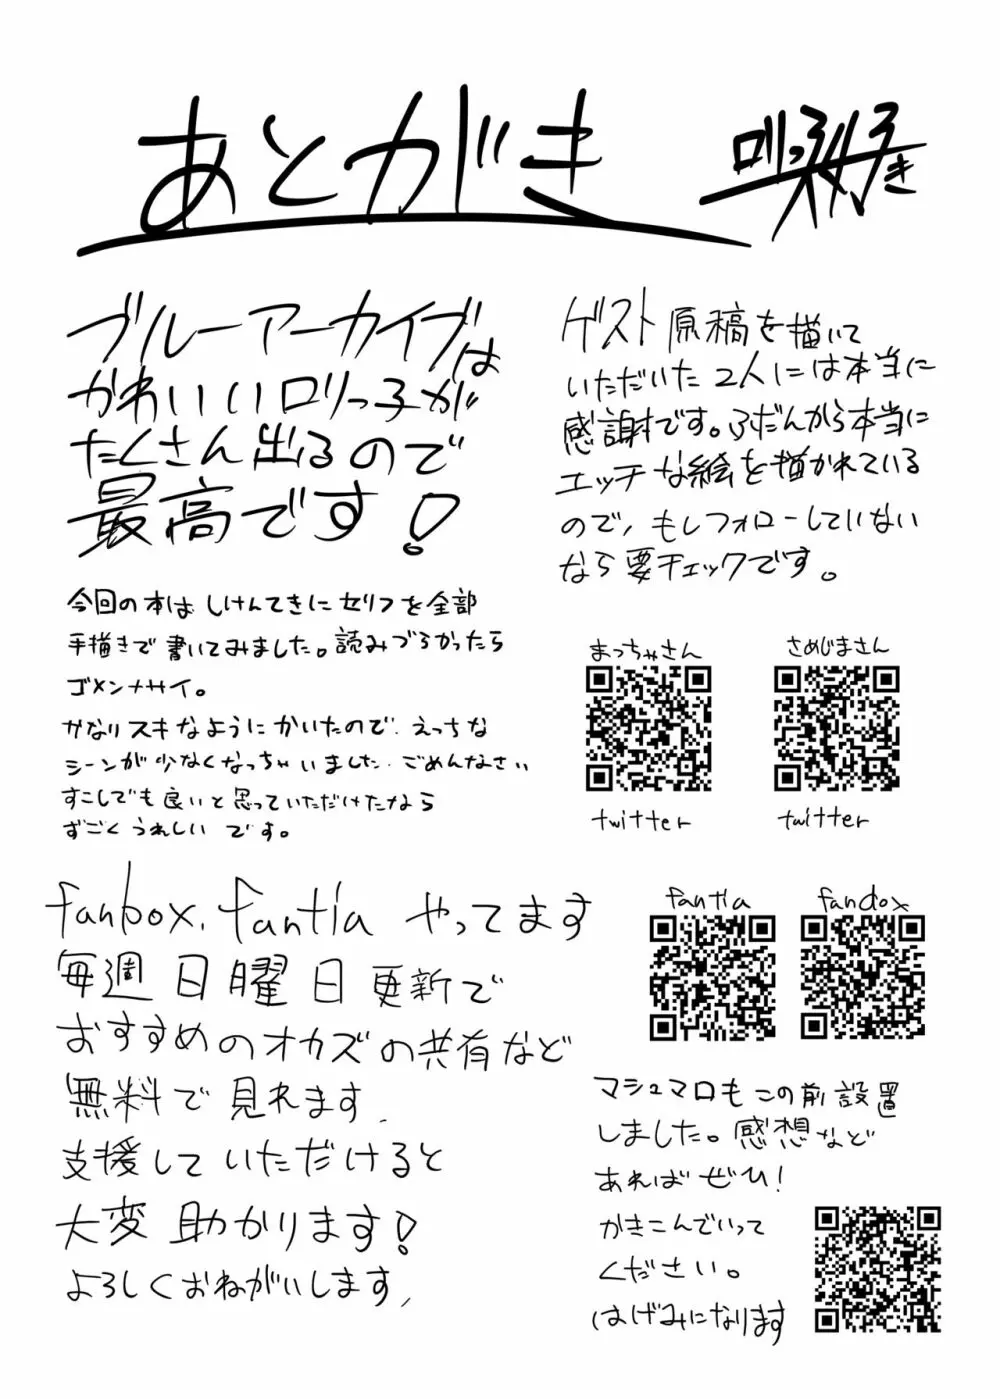 あとがき
ロリっ子好き
ブルーアーカイブは
かわいいロリっ子が
たくさん出るので
最高です!
今回の本はしけんてきにセリフを全部
手描きで書いてみました。読みづらかったら
ゴメンナサイ。
かなりスキなようにかいたので、えっちな
シーンが少なくなっちゃいました、ごめんなさい
すこしでも良いと思っていただけたなら
すごくうれしいです。
ゲスト原稿を描いて
いただいた2人には本当に
感謝です。ふだんから本当に
エッチな絵を描かれている
ので、もしフォローしていない
なら要チェックです。
まっちゃさん
twitter
さめじまさん
twitter
fanbox、fantia やってます
毎週日曜日更新で
おすすめのオカズの共有など
無料で見れます、
支援していただけると
大変助かります!
よろしくおねがいします、
fantia
fanbox
マシュマロもこの前設置
しました。感想など
あればぜひ!
かきこんでいって
ください。
はげみになります